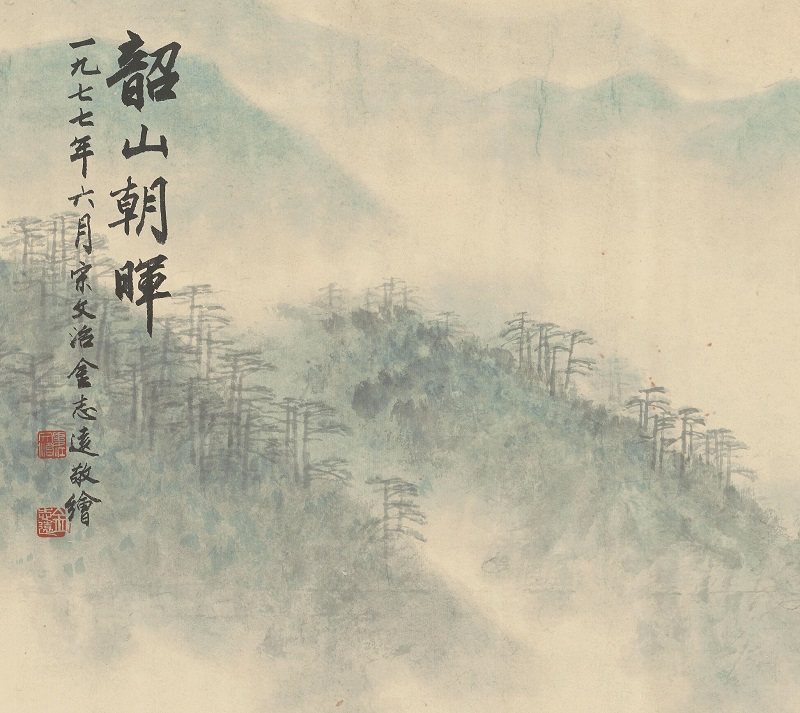 韶山朝暉
一九七七年六月宋文治金志遠敬繪